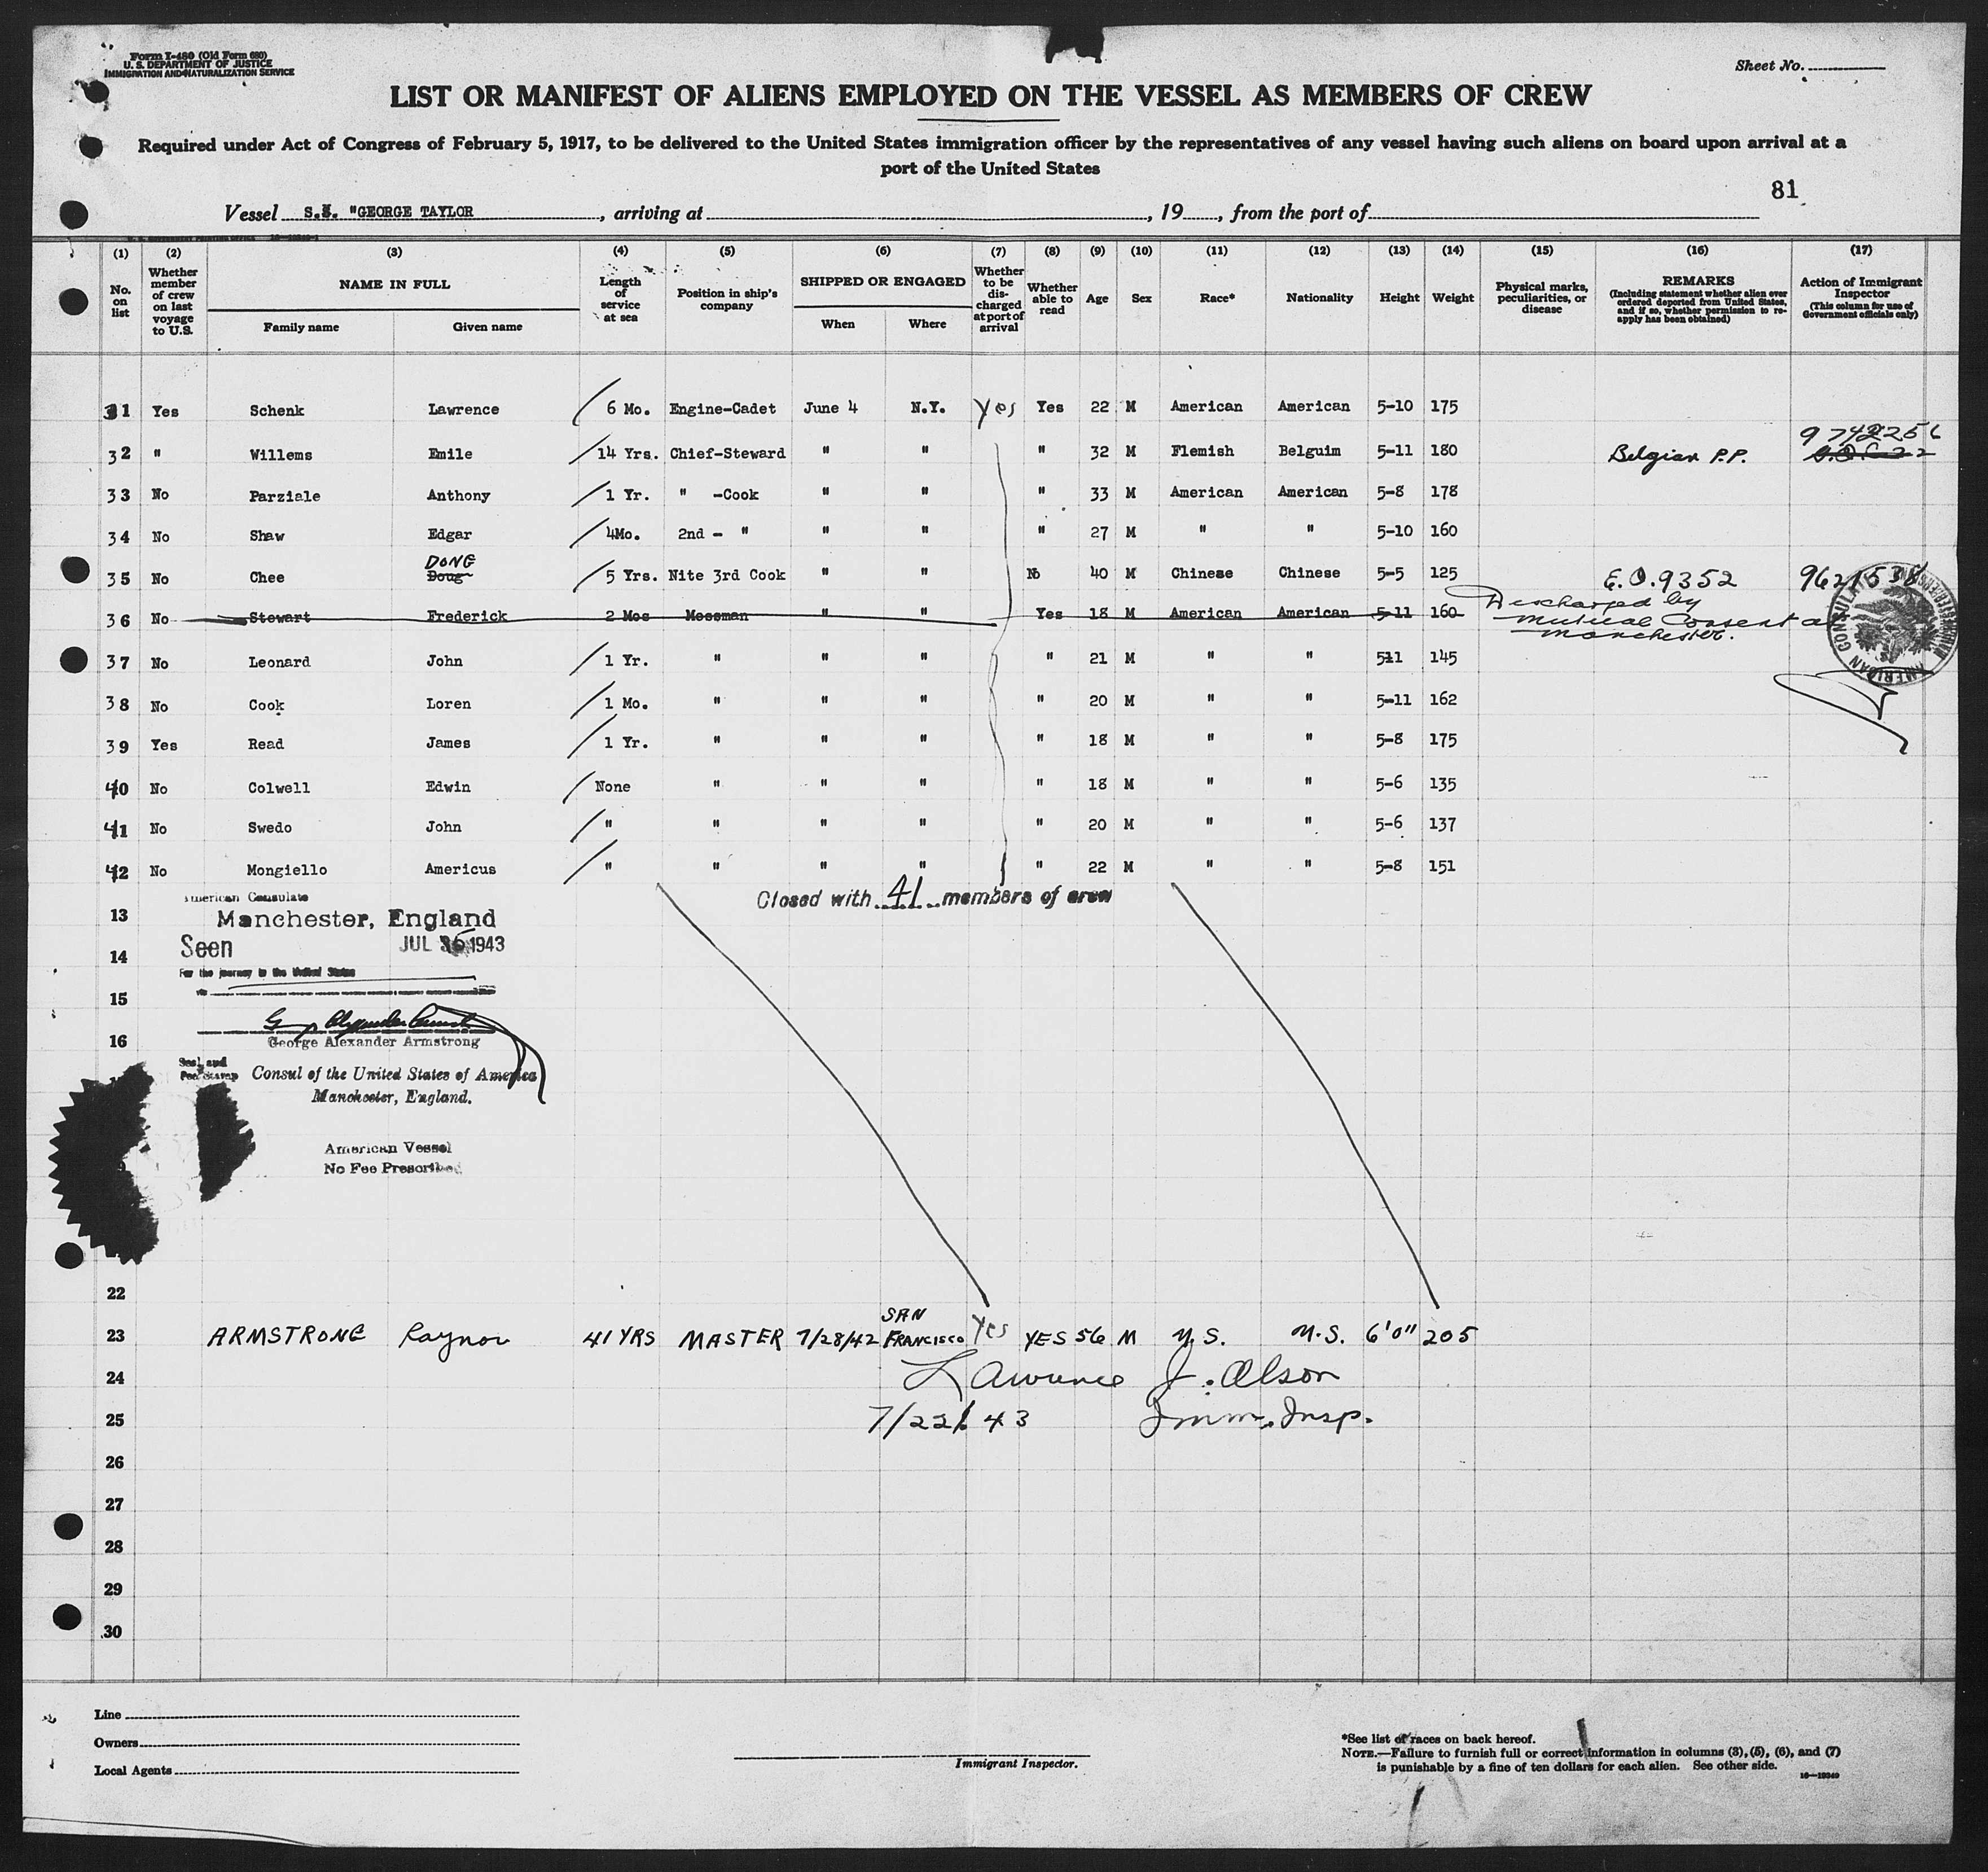 Form I-489 (Old Form 689)
U. S. DEPARTMENT OF JUSTICE
IMMIGRATION AND NATURALIZATION SERVICE
Sheet No.
LIST OR MANIFEST OF ALIENS EMPLOYED ON THE VESSEL AS MEMBERS OF CREW
Required under Act of Congress of February 5, 1917, to be delivered to the United States immigration officer by the representatives of any vessel having such aliens on board upon arrival at a
port of the United States
81
Vessel S.S. "GEORGE TAYLOR , arriving at , 19 , from the port of
(1) (2) (3) (4) (5) (6) (7) (8) (9) (10) (11) (12) (13) (14) (15) (16) (17)
No. on list
Whether member of crew on last voyage to U.S.
NAME IN FULL
Family name Given name
Length of service at sea
Position in ship's company
SHIPPED OR ENGAGED
When Where
Whether to be discharged at port of arrival
Whether able to read
Age
Sex
Race*
Nationality
Height
Weight
Physical marks, peculiarities, or disease
REMARKS
(Including statement whether alien ever ordered deported from United States, and if so, whether permission to reapply has been obtained)
Action of Immigrant Inspector
(This column for use of Government officials only)
31 Yes Schenk Lawrence 6 Mo. Engine-Cadet June 4 N.Y. Yes Yes 22 M American American 5-10 175
32 " Willems Emile 14 Yrs. Chief-Steward " " " 32 M Flemish Belguim 5-11 180 Belgian P.P. 9742256
33 No Parziale Anthony 1 Yr. " -Cook " " " 33 M American American 5-8 178
34 No Shaw Edgar 4Mo. 2nd - " " " " 27 M " " 5-10 160
DONG
35 No Chee Doug 5 Yrs. Nite 3rd Cook " " No 40 M Chinese Chinese 5-5 125 E.O.9352 9621538
36 No Stewart Frederick 2 Mos Messman " " Yes 18 M American American 5-11 160 Discharged by
mutual Consent at
Manchester.
37 No Leonard John 1 Yr. " " " " 21 M " " 5-11 145
38 No Cook Loren 1 Mo. " " " " 20 M " " 5-11 162
39 Yes Read James 1 Yr. " " " " 18 M " " 5-8 175
40 No Colwell Edwin None " " " " 18 M " " 5-6 135
41 No Swedo John " " " " " 20 M " " 5-6 137
42 No Mongiello Americus " " " " " 22 M " " 5-8 151
Closed with 41 members of crew
American Consulate
13 Manchester, England
Seen JUL 1943
14
For the journey to the United States
15
16 George Alexander Armstrong
Seal and
Fee Stamp Consul of the United States of America
Manchester, England.
American Vessel
No Fee Prescribed
AMERICAN CONSULATE
22
SAN
23 ARMSTRONG Raynor 41 YRS MASTER 7/28/42 FRANCISCO Yes YES 56 M U.S. U.S. 6'0" 205
24 Lawrence J. Olson
25 7/22/43 Imm. Insp.
26
27
28
29
30
Line
Owners
Local Agents
Immigrant Inspector.
*See list of races on back hereof.
NOTE.—Failure to furnish full or correct information in columns (3), (5), (6), and (7)
is punishable by a fine of ten dollars for each alien. See other side.
16—19349